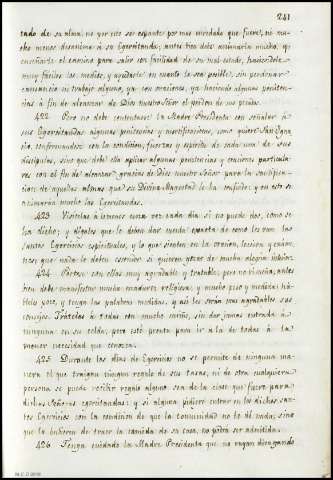 241
tado de su alma, no por esto se espante por mas enredado que fuere, ni mu-
cho menos desanime à su Egercitanda; antes bien debe animarla mucho, y
enseñarle el camino para salir con facilidad de su mal estado, haciendole
muy faciles los medios, y ayudarle en cuanto le sea posible, sin perdonar
cansancio ni trabajo alguno, ya con oraciones, ya haciendo algunas peniten-
cias à fin de alcanzar de Dios nuestro Señor el perdon de sus pecados.
422. Pero no debe contentarse la Madre Presidenta con señalar à
sus Egercitandas algunas penitencias y mortificaciones, como quiere San Igna-
cio, conformandose con la condicion, fuerzas y espiritu de cada una de sus
discipulas, sino que debe ella aplicar algunas penitencias y oraciones particula-
res con el fin de alcanzar gracias de Dios nuestro Señor para la santifica-
cion de aquellas almas que su Divina Magestad le ha confiado; y con esto se
animarán mucho las Egercitandas.
423. Visitelas à lo menos una vez cada dia, si no puede dos, como se
ha dicho; y digales que le deben dar cuenta exacta de como les van los
santos Egercicios espirituales, y lo que sienten en la oracion, leccion y exáme-
nes; que nada le deben esconder si quieren gozar de mucha alegria interior.
424. Pórtese con ellas muy agradable y tratable; pero no liviana; antes
bien debe manifestar mucha madurez religiosa, y mucho peso y medida: há-
bleles poco, y tenga las palabras medidas, y asi les serán mas agradables sus
consejos. Trátelas à todas con mucho cariño, sin dar jamas entrada à
ninguna en su celda; pero esté pronta para ir à la de todas à la
menor necesidad que conozca.
425. Durante los dias de Egercicios no se permita de ninguna ma-
nera el que traigan ningun regalo de sus casas, ni de otra cualquiera
persona se pueda recibir regalo alguno sea de la clase que fuere para
dichas Señoras egercitandas; y si alguna pidiere entrar en los dichos san-
tos Egercicios con la condicion de que la comunidad no le dé nada, sino
que la hubieren de traer la comida de su casa, no podrá ser admitida.
426. Tenga cuidado la Madre Presidenta que no vayan divagando